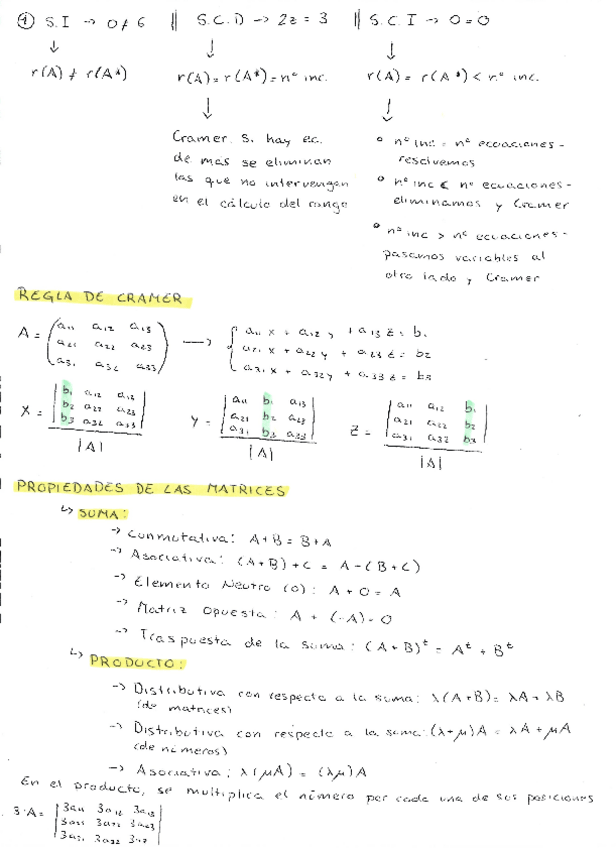 ① S.I → 0≠6 || S.C.D → 2z = 3 || S.C.I → 0=0
↓ ↓ ↓
r(A) ≠ r(A*) r(A) = r(A*) = nº inc. r(A) = r(A*) < nº inc.
↓ ↓
Cramer. Si hay ec.
de más se eliminan
las que no intervengan
en el cálculo del rango
° nº inc = nº ecuaciones -
resolvemos
° nº inc < nº ecuaciones -
eliminamos y Cramer
° nº inc > nº ecuaciones -
pasamos variables al
otro lado y Cramer
REGLA DE CRAMER
A = (a11 a12 a13 → { a11 x + a12 y + a13 z = b1
a21 a22 a23 a21 x + a22 y + a23 z = b2
a31 a32 a33) a31 x + a32 y + a33 z = b3
X = |b1 a12 a13 Y = |a11 b1 a13 Z = |a11 a12 b1
b2 a22 a23 a21 b2 a23 a21 a22 b2
b3 a32 a33| a31 b3 a33| a31 a32 b3|
|A| |A| |A|
PROPIEDADES DE LAS MATRICES
↳ SUMA:
→ Conmutativa: A+B = B+A
→ Asociativa: (A+B)+C = A-(B+C)
→ Elemento Neutro (0): A + 0 = A
→ Matriz Opuesta: A + (-A) = 0
→ Traspuesta de la suma: (A+B)ᵗ = Aᵗ + Bᵗ
↳ PRODUCTO:
→ Distributiva con respecto a la suma: λ(A+B) = λA + λB
(de matrices)
→ Distributiva con respecto a la suma: (λ+μ)A = λA + μA
(de números)
→ Asociativa: λ(μA) = (λμ)A
En el producto, se multiplica el número por cada una de sus posiciones
3·A = |3a11 3a12 3a13